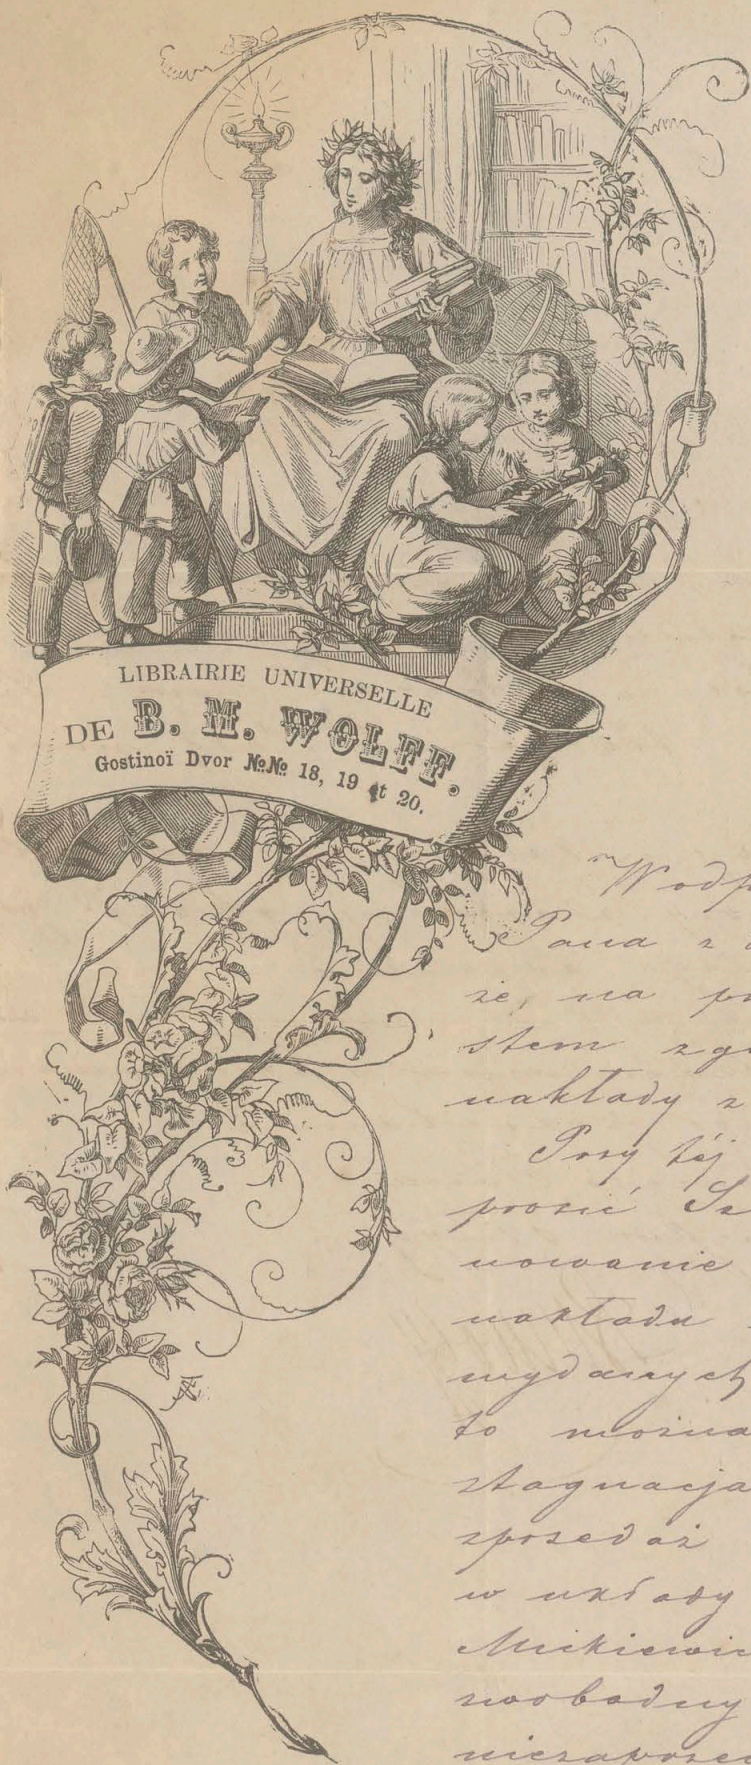 LIBRAIRIE UNIVERSELLE
DE B. M. WOLFF.
Gostinoï Dvor №№ 18, 19 et 20.
W odp
Pana z
że, na
stem
nakłady z
Przy téj
prosić Sz
nowanie
nakładu
wydanych
to można
stagnacja
w układy
Mickiewic
swobodny